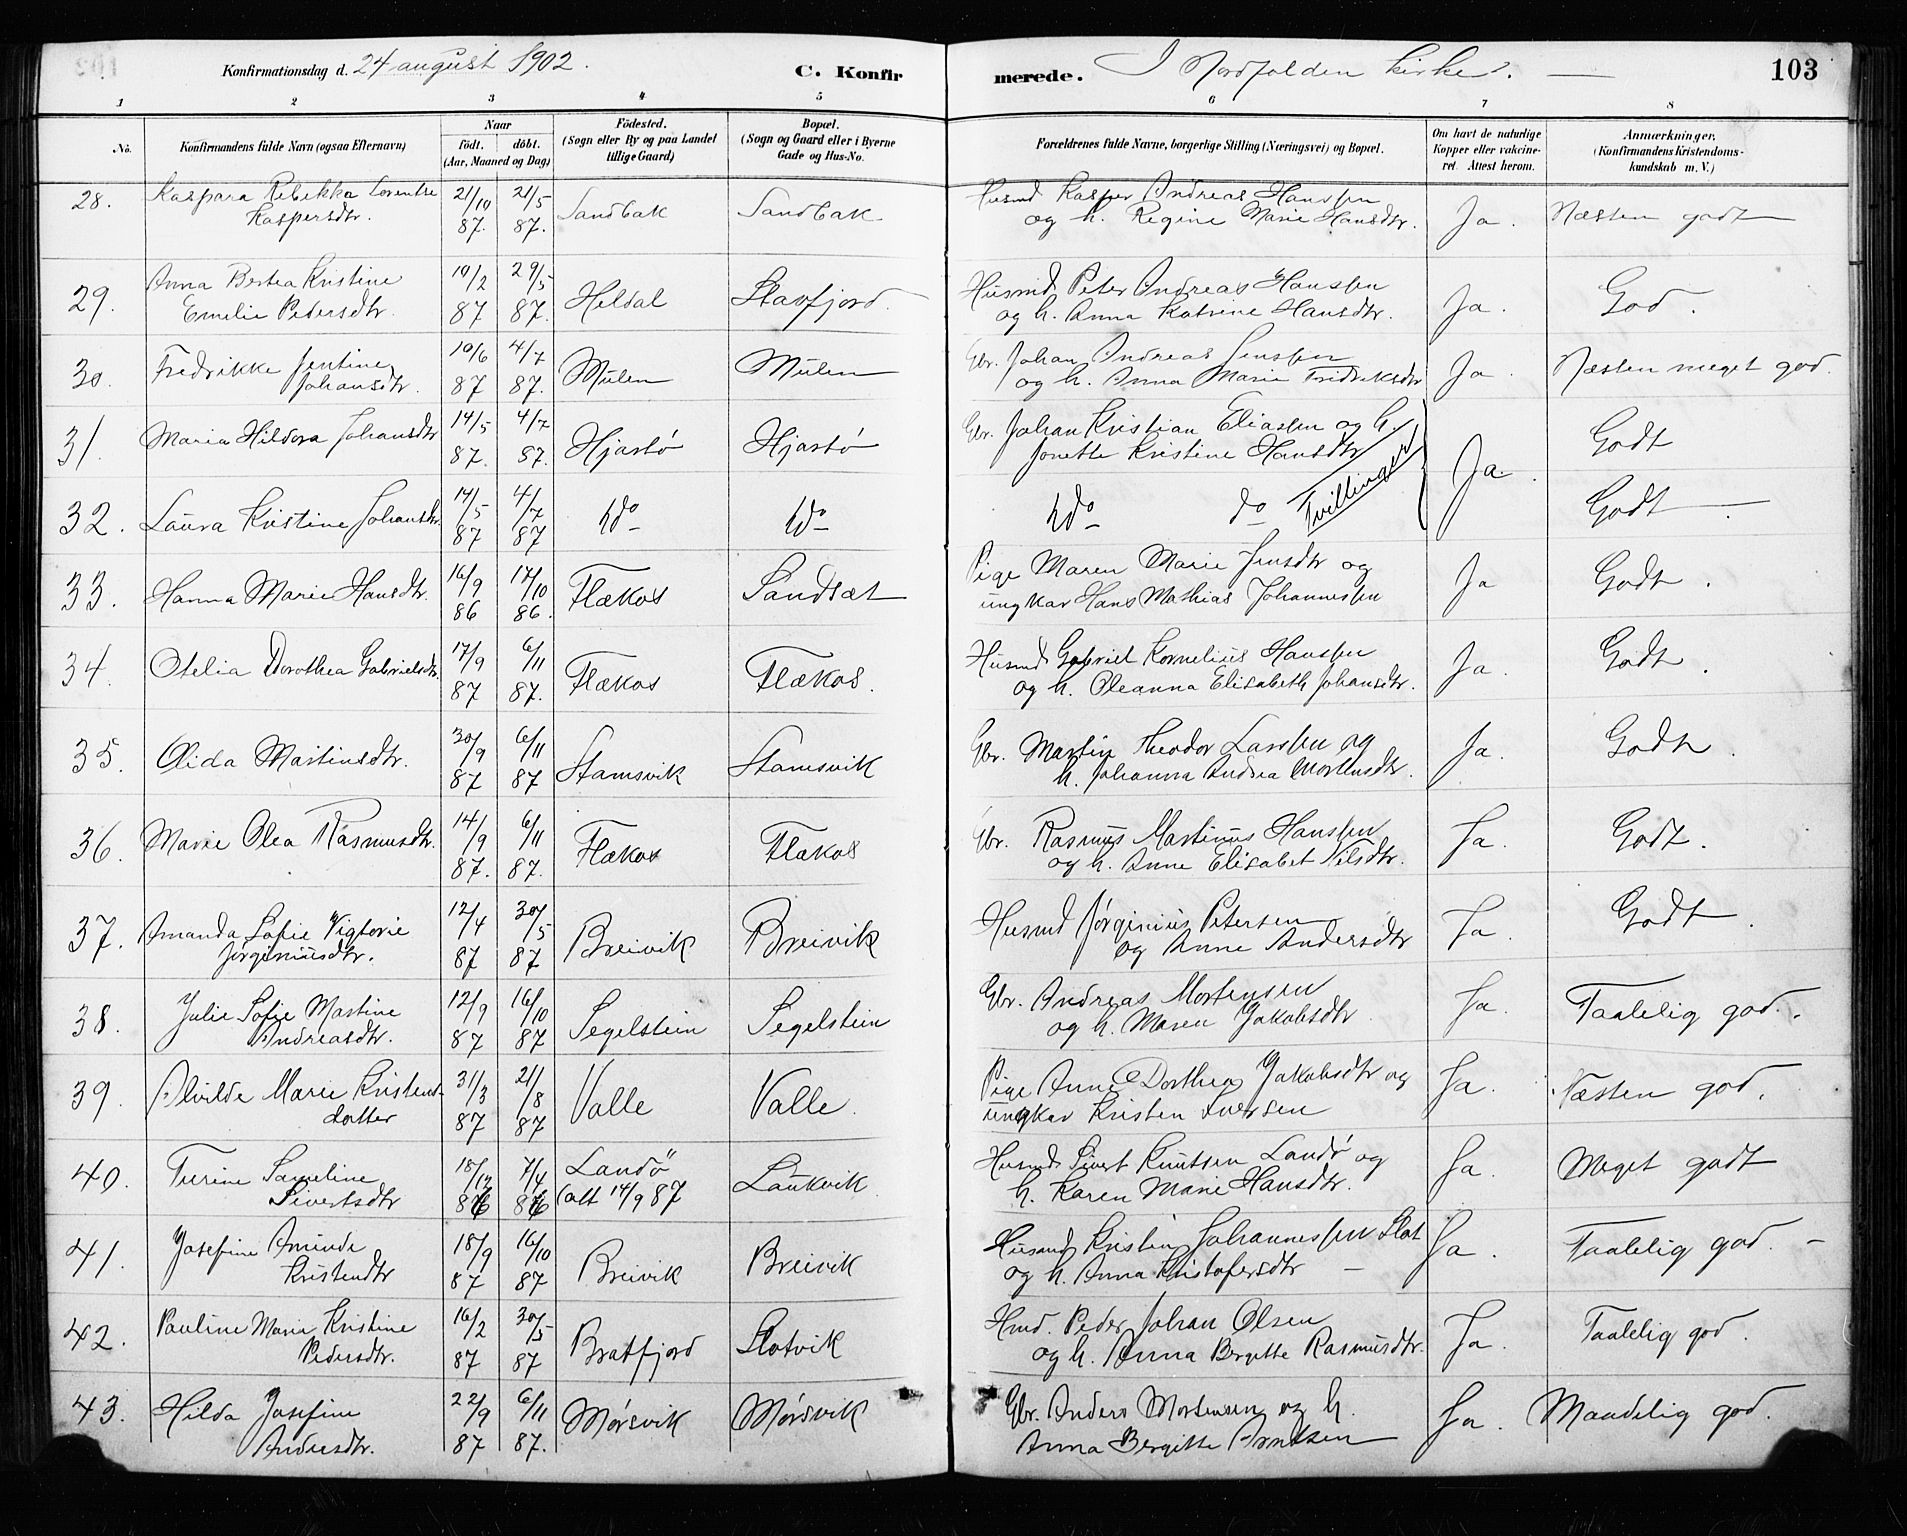 Konfirmationsdag d. 24 august 1902. C. Konfir merede. I Nordfolden kirke. 103
1 2 3 4 5 6 7 8
No. Konfirmandens fulde Navn (ogsaa Efternavn) Naar født. døbt. (Aar, Maaned og Dag) Fødested. (Sogn eller By og paa Landet tillige Gaard) Bopæl. (Sogn og Gaard eller i Byerne Gade og Hus-No. Forældrenes fulde Navne, borgerlige Stilling (Næringsvei) og Bopæl. Om havt de naturlige Kopper eller vakcineret. Attest herom. Anmærkninger. (Konfirmandens Kristendomskundskab m. V.)
28. Kaspara Rebekka Lorentse 21/10 21/5 Sandbak Sandbak Husmd Kasper Andreas Hanssen Ja. Næsten godt
Kaspersdtr. 87. 87. og h. Regine Marie Hansdtr.
29. Anna Bertea Kristine 19/2 29/5 Heldal Stavfjord. Husmd Peter Andreas Hanssen Ja. God.
Emelie Pedersdtr. 87 87. og h. Anna Katrine Hansdtr.
30. Fredrikke Jentine 10/6 4/7 Mulen Mulen Gbr. Johan Andreas Jenssen Ja. Næsten meget god.
Johansdtr. 87 87. og h. Anna Marie Fredriksdtr
31. Maria Hildora Johansdtr 14/5 4/7 Hjartø Hjartø Gbr. Johan Kristian Eliassen og h. Ja. Godt
87. 87. Jonette Kristine Hansdtr
32. Laura Kristine Johansdtr. 14/5 4/7 do do do do Tvillinger Godt
87 87
33. Hanna Marie Hansdtr. 16/9 17/10 Flækos Sandsæt Pige Maren Marie Jensdtr og Ja Godt.
86 86. ungkar Hans Mathias Johannessen
34. Otelia Dorothea Gabrielsdtr. 17/9 6/11 Flækos Flækos. Husmd Gabriel Kornelius Hanssen Ja. Godt.
87 87. og h. Oleanna Elisabeth Johansdtr.
35. Olida Martinsdtr. 30/9 6/11 Stamsvik Stamsvik Gbr. Martin Theodor Larssen og Ja. Godt.
87 87 h. Johanna Andrea Mortensdtr.
36. Marie Olea Rasmusdtr. 14/9 6/11 Flækos Flakos Gbr. Rasmus Martinus Hanssen Ja. Godt.
87. 87. og h. Anne Elisabet Nilsdtr.
37. Amanda Sofie Vigtorie 12/4 30/5 Breivik Breivik Husmd Jørginius Petersen Ja. Godt.
Jørginiusdtr. 87 87 og Anne Andersdtr
38. Julie Sofie Martine 12/9 16/10 Segelstein Segelstein Gbr. Andreas Mortensen Ja. Taalelig god.
Andreasdtr. 87 87 og h. Maren Jakobsdtr
39. Alvilde Marie Kristens- 31/3 21/8 Valle Valle. Pige Anne Dorthea Jakobsdtr og Ja. Næsten god.
datter 87 87 ungkar Kristen Iversen
40. Turine Sameline 18/12 7/4 Landø Laukvik Husmd Sivert Knutsen Landø og Ja. Meget godt
Sivertsdtr 86 86 (alt 14/9 87 h. Karen Marie Hansdtr.
41. Josefine Aminda 18/9 16/10 Breivik Breivik Husmd Kristen Johannessen Slot Ja. Taalelig god. -
Kristendtr 87 87 og h. Anna Kristofersdtr
42. Pauline Marie Kristine 16/2 30/5 Bratfjord Slotvik Hmd. Peder Johan Olsen Ja. Taalelig god.
Pedersdtr. 87 87 og h. Anna Bergitte Rasmusdtr.
43. Hilda Josefine 22/9 6/11 Mørsvik Mørsvik Gbr. Anders Mortensen og h. Ja. Maadelig god.
Andersdtr. 87 87. Anna Bergitte Arntsen